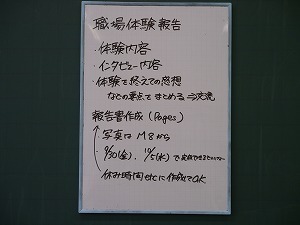 職場体験報告
・体験内容
・インタビュー内容
・体験を終えての感想
などの要点でまとめる⇒交流
報告書作成 (Pages)
写真は M8から
9/30(金)、10/5(水)で完成できるといい
休み時間etcに作成でOK